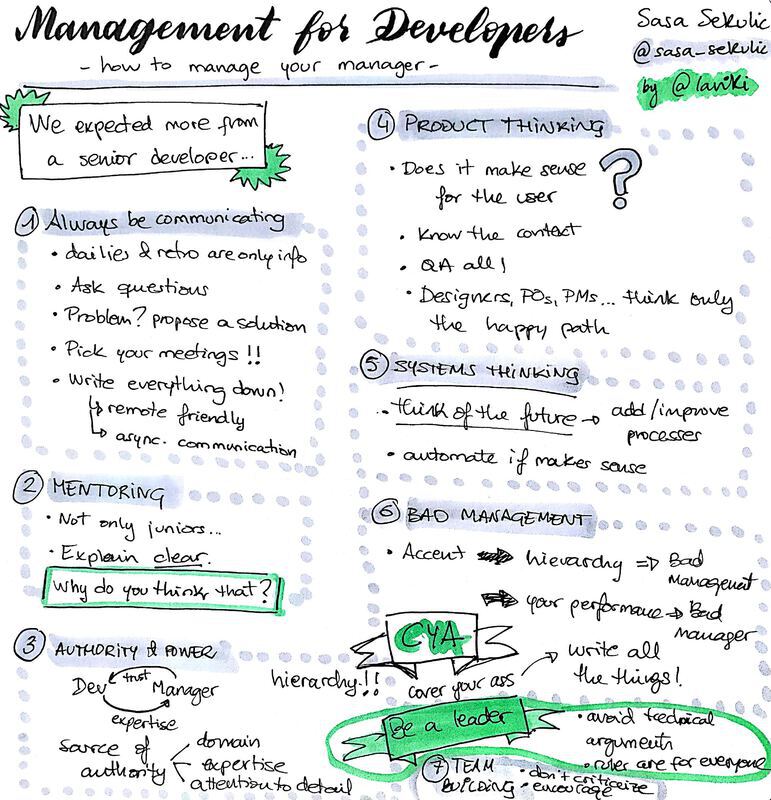 Management for Developers
- how to manage your manager -
Sasa Sekulic
@sasa_sekulic
by @lariki
We expected more from
a senior developer...
1 Always be communicating
• dailies & retro are only info
• Ask questions
• Problem? propose a solution
• Pick your meetings !!
• Write everything down!
remote friendly
async. communication
2 MENTORING
• Not only juniors...
• Explain clear.
Why do you think that?
3 AUTHORITY & POWER
hierarchy!!
Dev trust Manager
expertise
source of
authority
domain
expertise
attention to detail
4 PRODUCT THINKING
• Does it make sense
for the user
?
• Know the context
• QA all!
• Designers, POs, PMs... think only
the happy path
5 SYSTEMS THINKING
• think of the future → add/improve
processes
• automate if makes sense
6 BAD MANAGEMENT
• Accent → hierarchy ⇒ Bad
Management
→ your performance → Bad
manager
CYA
cover your ass
write all
the things!
Be a leader
• avoid technical
arguments
• rules are for everyone
7 TEAM
BUILDING
• don't criticize
• encourage